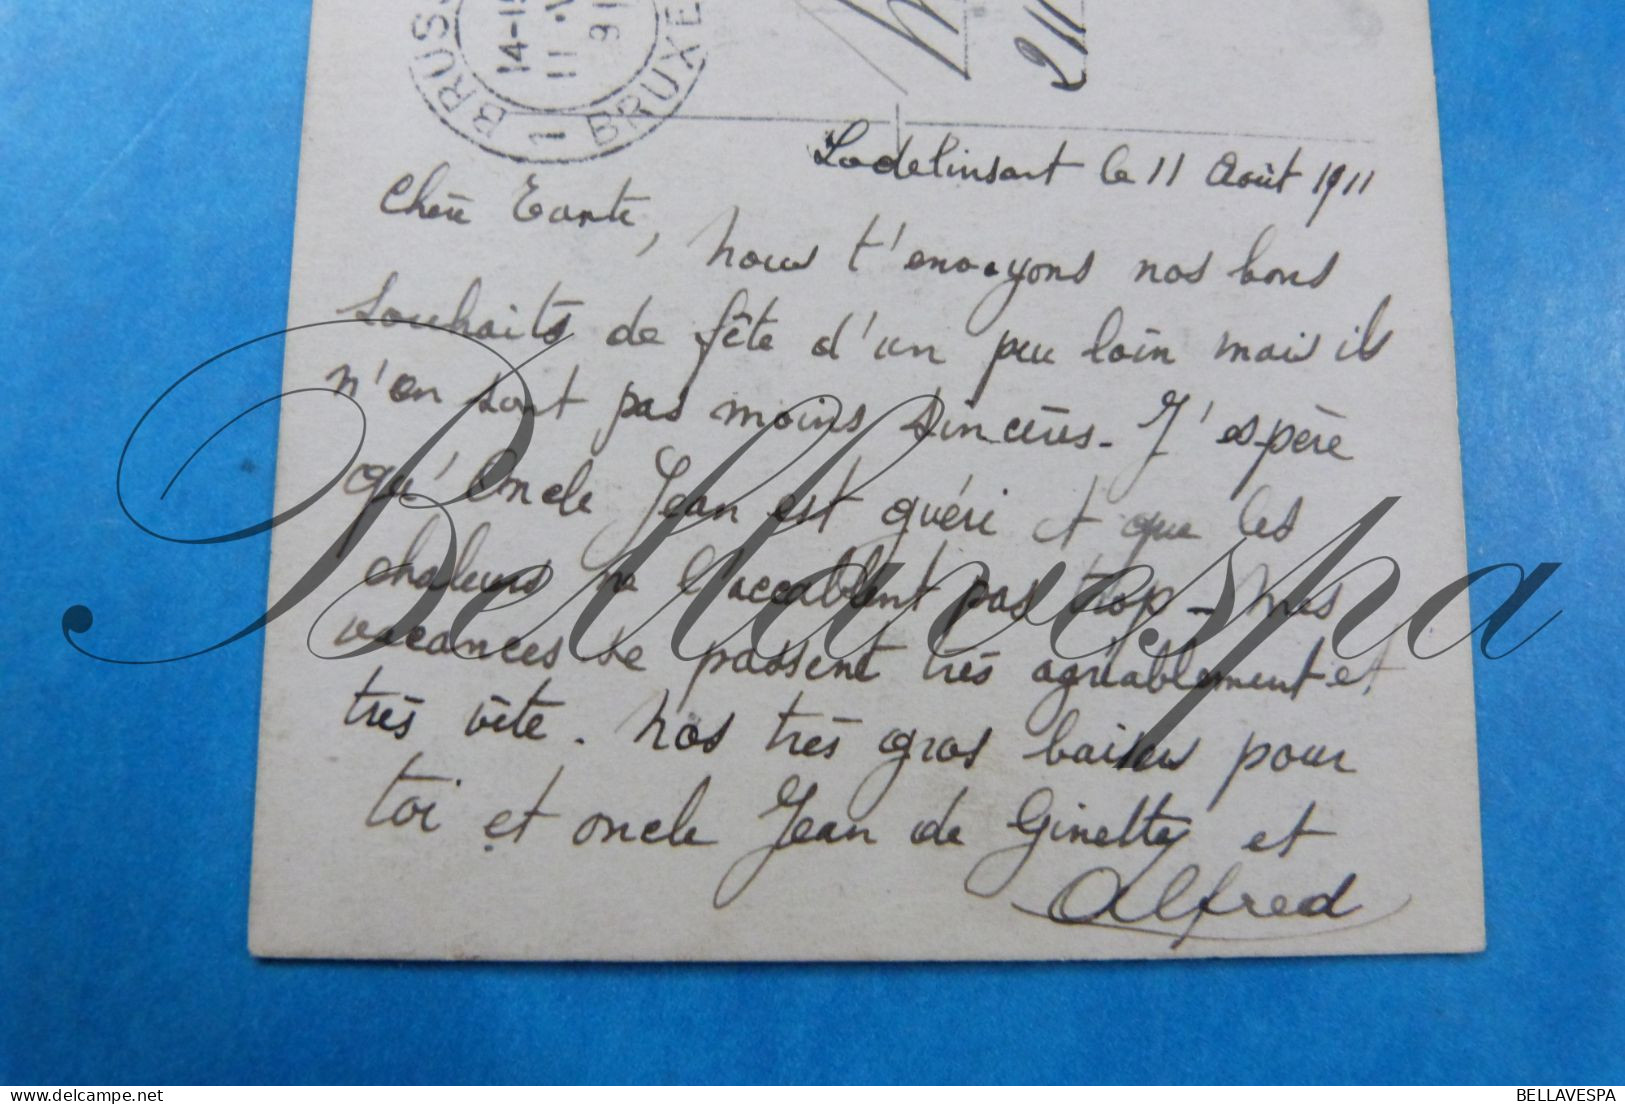 BRUS
14-15
11·V
91
1
BRUXE
211
Lodelinsart le 11 Août 1911
Chère Tante,
Nous t'envoyons nos bons
souhaits de fête d'un peu loin mais ils
n'en sont pas moins sincères - J'espère
qu'Oncle Jean est guéri et que les
chaleurs ne l'accablent pas trop - Mes
vacances se passent très agréablement et
très vite. Nos très gros baisers pour
toi et oncle Jean de Ginette et
Alfred
Bellavespa
BELLAVESPA